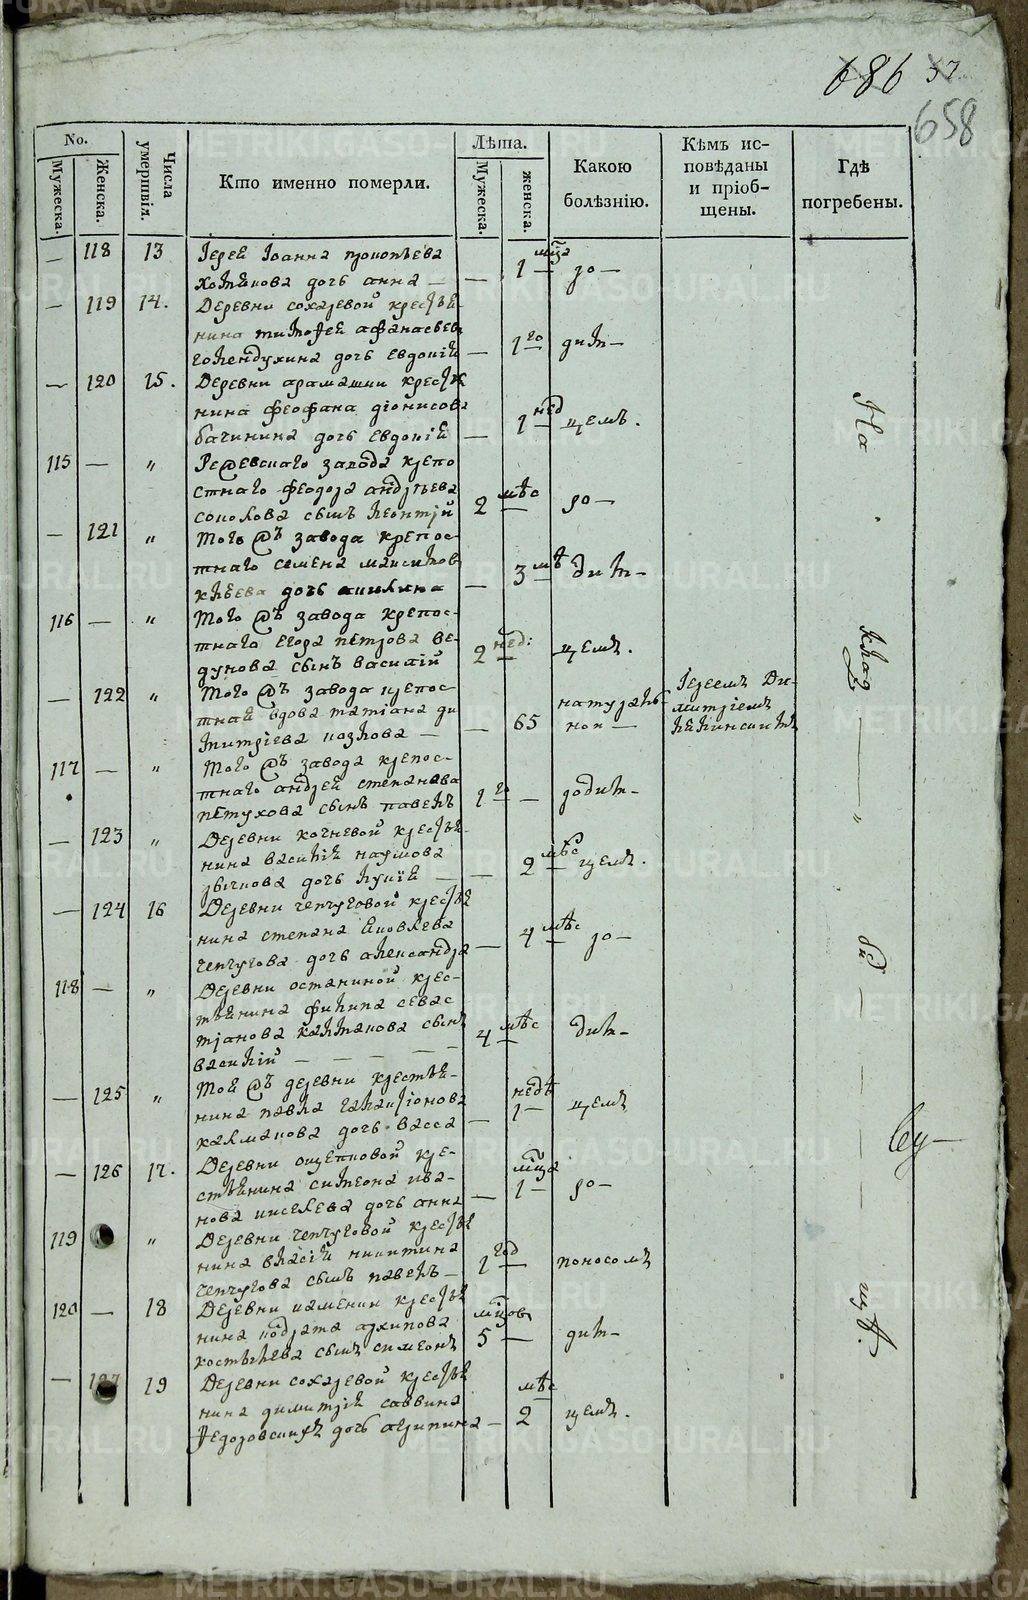 686 37
658
No.
Мужеска.
Женска.
Числа умершвія.
Кто именно померли.
Лѣта.
Мужеска.
женска.
Какою болѣзнію.
Кѣмъ исповѣданы и пріобщены.
Гдѣ погребены.
— 118 13 Іерей Іоанна
дочь анна — — 1 мца ро—
— 119 14. Деревни сохаревой крестья-
нина тимофей афанасьев
голендухина дочь Евдокій — 1 го дит—
— 120 15. Деревни арамашки крестья
нина феофана діонисова
бачинина дочь Евдокій — 1 нед щемъ.
115 — „ Режевскаго завода крепо
стнаго феодора андрѣева
соколова сынъ леонтій 2 мѣс ро—
— 121 „ Того жъ завода крепос-
тнаго семена максимов
дочь акилина — 3 мѣ дит—
116 — „ Того жъ завода крепос-
тнаго Егора петрова ве-
дунова сынъ василій 2 нед: щемъ.
— 122 „ Того жъ завода крепос-
тная вдова татіана ди
митріева — — 65 натураль-
ной — Іереемъ Ди-
митріемъ
117 — „ Того жъ завода крепос-
тнаго андрей степанова
петухова сынъ павелъ 1 го — родит—
— 123 „ Деревни кочневой крестья-
нина василій наумова
дочь лукій — — 2 мѣс щемъ.
— 124 16 Деревни чепчуговой крестья
нина степана Яковлева
чепчугова дочь александра — 4 мѣс ро—
118 — „ Деревни останиной крес-
тьянина филипа севас
тьянова калтакова сынъ
василій — — — — 4 мѣс дит—
— 125 „ Той жъ деревни крестья-
нина павла галактіонова
калманова дочь васса — недѣ 1 — щемъ
— 126 17. Деревни ощепковой кре-
стьянина симеона ива-
нова киселева дочь анна — мца 1 — ро—
119 „ Деревни чепчуговой крестья
нина власій никитина
чепчугова сынъ павелъ — 1 год — поносомъ
120 — 18 Деревни каменки крестья
нина кодрата архипова
костылева сынъ симеонъ мцовъ 5 — дит—
— 127 19 Деревни сохаревой крестья
нина димитрій саввина
федоровскихъ дочь акрипина — мѣс 2 щемъ.
На
клад
би
щѣ.
METRIKI.GASO-URAL.RU